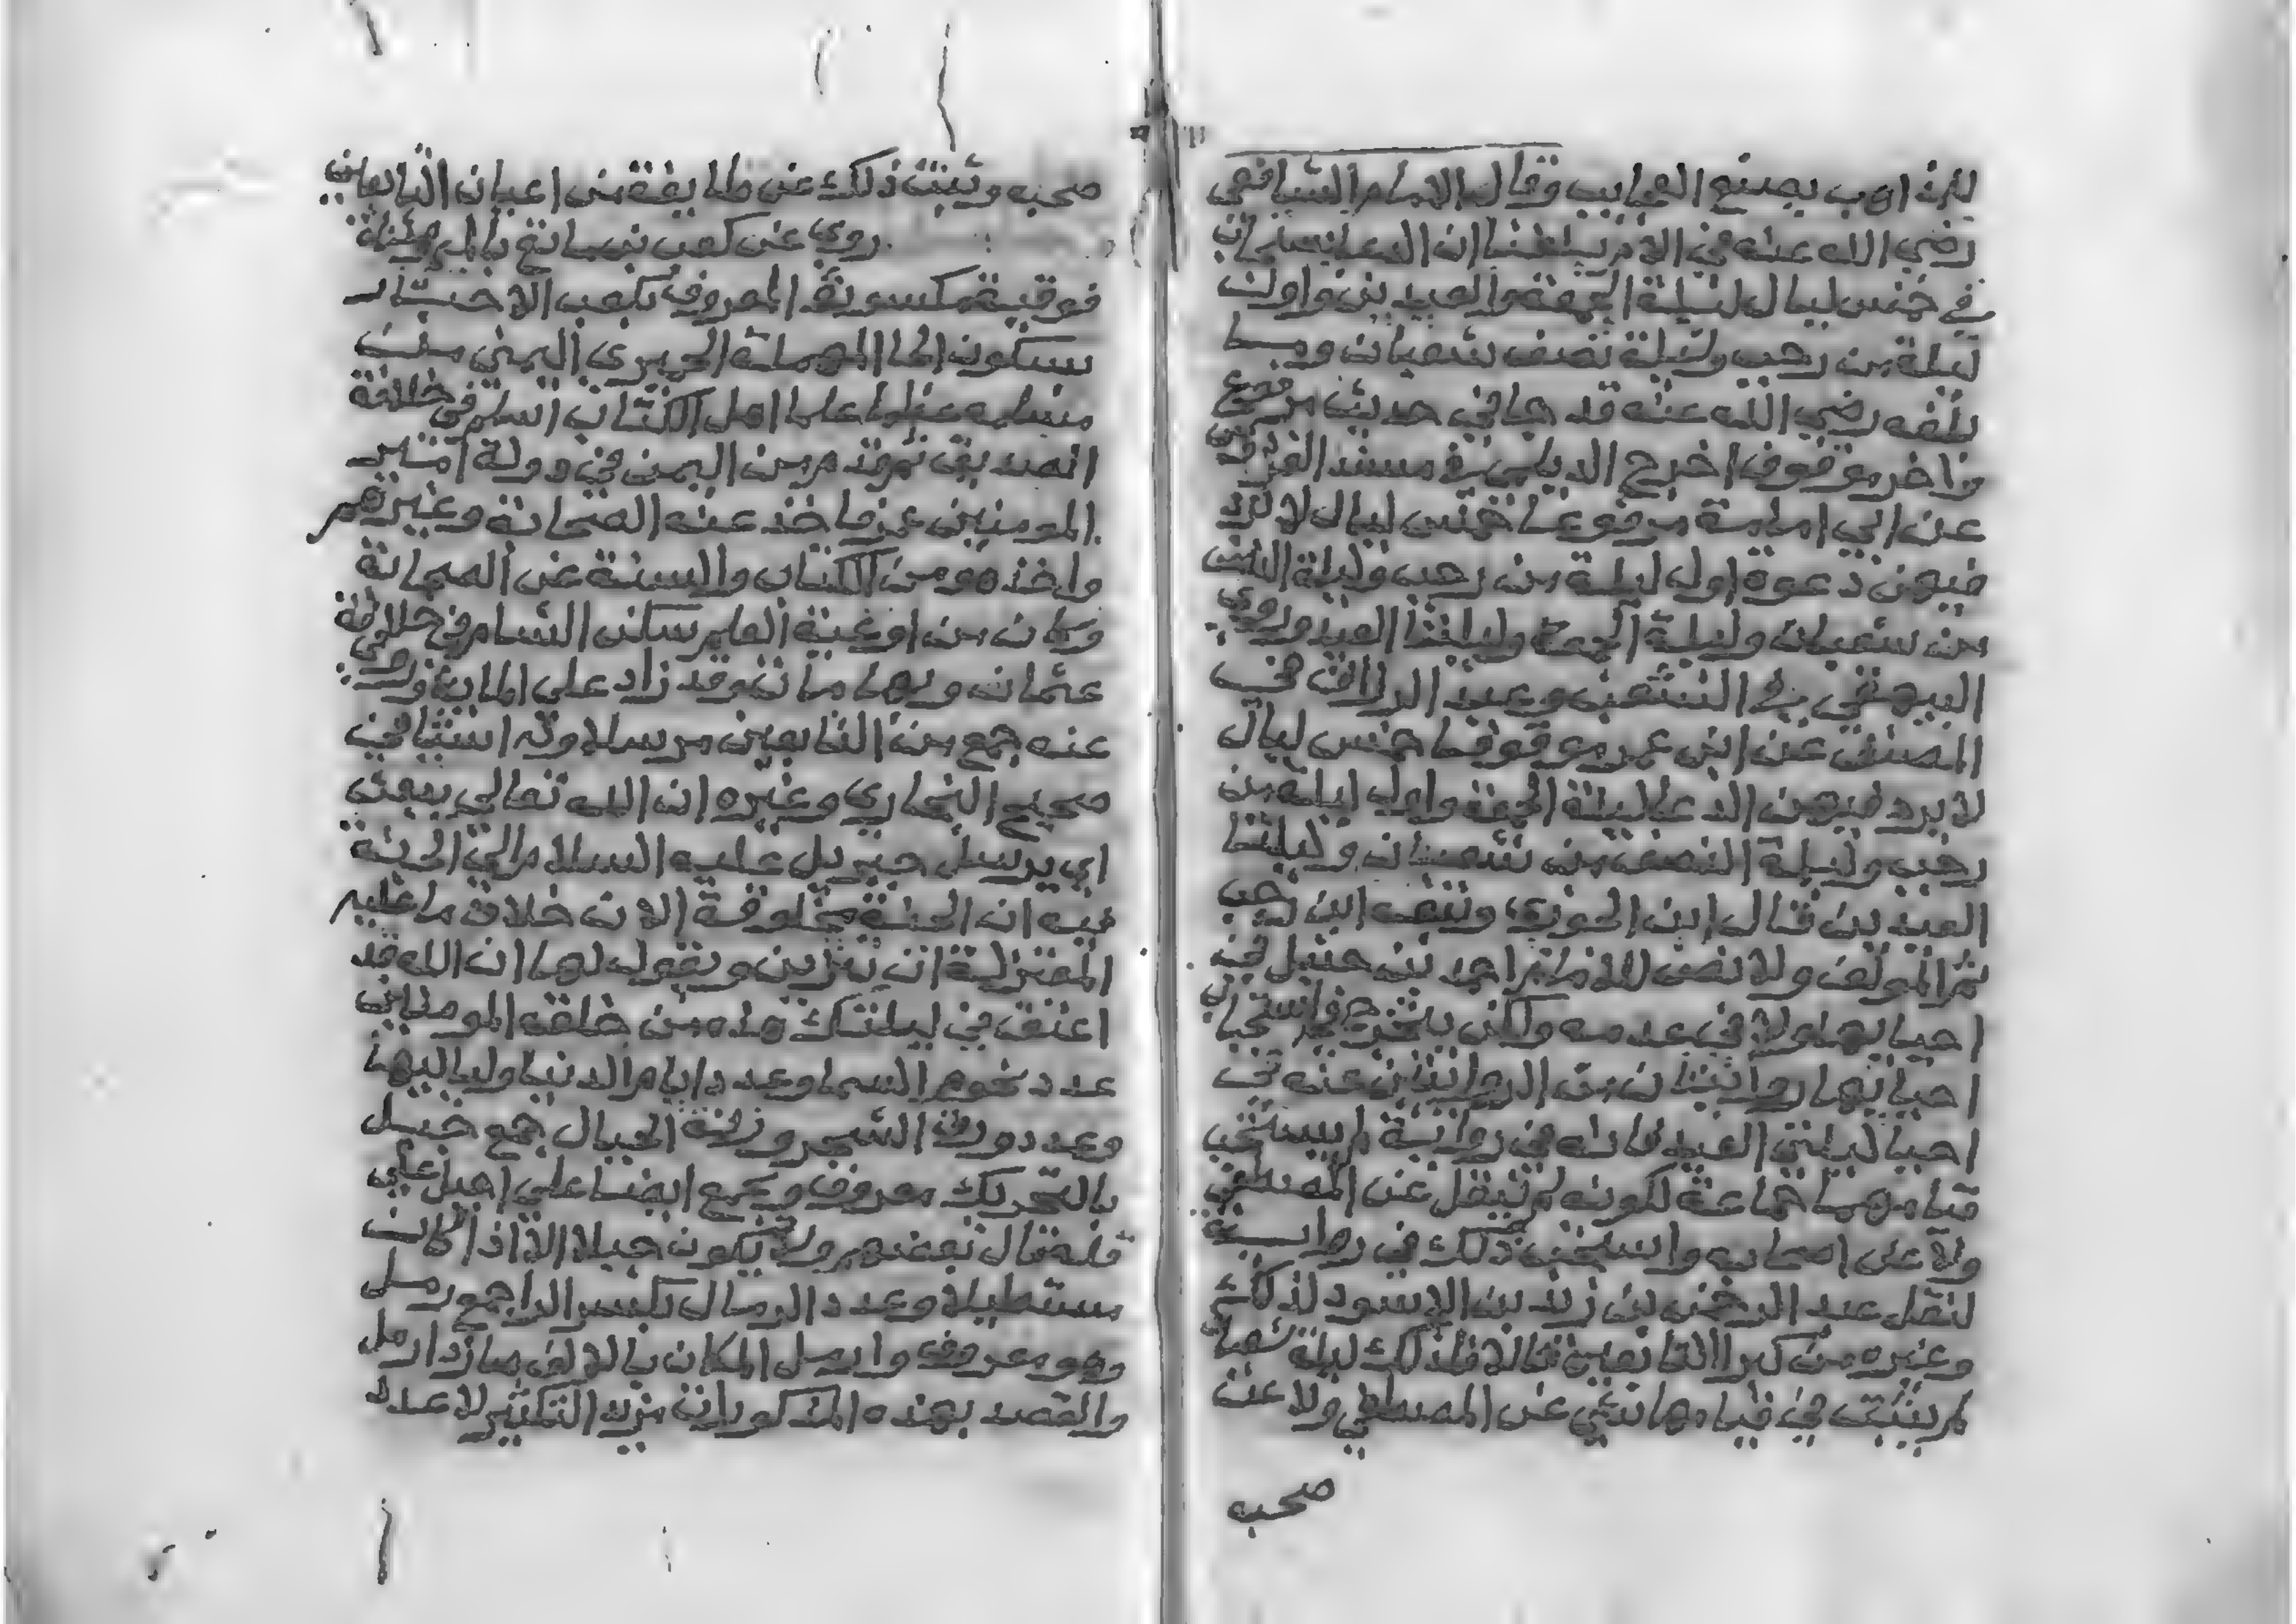 للمذاهب بصنع العجايب وقال الامام الشافعي
رضي الله عنه في الام بلغنا ان الدعا يستجاب
في خمس ليال ليلة الجمعة والعيدين واول
ليلة من رجب وليلة نصف شعبان وما
بلغه رضي الله عنه قد جا في حديث مرفوع
واخر موقوف اخرج الديلمي في مسند الفردوس
عن ابي امامة مرفوعا خمس ليال لا ترد
فيهن دعوة اول ليلة من رجب وليلة النصف
من شعبان وليلة الجمعة وليلتا العيد وروي
البيهقي في الشعب وعبد الرزاق في
المصنف عن ابن عمر موقوفا خمس ليال
لا يرد فيهن الدعا ليلة الجمعة واول ليلة من
رجب وليلة النصف من شعبان وليلتا
العيدين قال ابن الجوزي وتبعه ابن رجب
ثم المولف ولا نص للامام احمد بن حنبل في
احيايها ولا في عدمه ولكن يتخرج في استحباب
احيايها روايتان من الروايتين عنه في
احيا ليلتي العيد فانه في رواية لم يستحب
قيامهما جماعة لكونه لم ينقل عن المصطفى
ولا على اصحابه واستحب ذلك في رواية
لنقل عبد الرحمن بن زيد بن الاسود لذلك
وغيره من كبرا التابعين قالا فكذلك ليلة شعبان
لم يثبت في قيامها شي عن المصطفى ولا عن
صحبه
صحبه وثبت ذلك عن طايفة من اعيان التابعين
روي عن كعب بن ماتع بالميم ومثناة
فوقية مكسورة المعروف بكعب الاحبار
بسكون الحا المهملة الحميري اليمني من
مسلمه عظما علما اهل الكتاب اسلم في خلافة
الصديق ثم قدم من اليمن في دولة امير
المومنين عمر فاخذ عنه الصحابة وغيرهم
واخذ هو من الكتاب والسنة عن الصحابة
وكان من اوعية العلم سكن الشام في خلافة
عثمان وبها مات وقد زاد على الماية وروي
عنه جمع من التابعين مرسلا وله اشيا في
صحيح البخاري وغيره ان الله تعالى يبعث
اي يرسل جبريل عليه السلام الي الجنة
فيه ان الجنة مخلوقة الان خلاف ما عليه
المعتزلة ان تتزين ويقول لها ان الله قد
اعتق في ليلتك هذه من خلقه المومنين
عدد نجوم السما وعدد ايام الدنيا ولياليها
وعدد ورق الشجر وزنة الجبال جمع جبل
بالتحريك معروف ويجمع ايضا على اجبل علي
قلة قال بعضهم ولا يكون جبلا الا اذا كان
مستطيلا وعدد الرمال بكسر الرا جمع رمل
وهو معروف وارمل المكان بالالف صار ذا رمل
والقصد بهذه المذكورات مزيد التكثير لا عدد